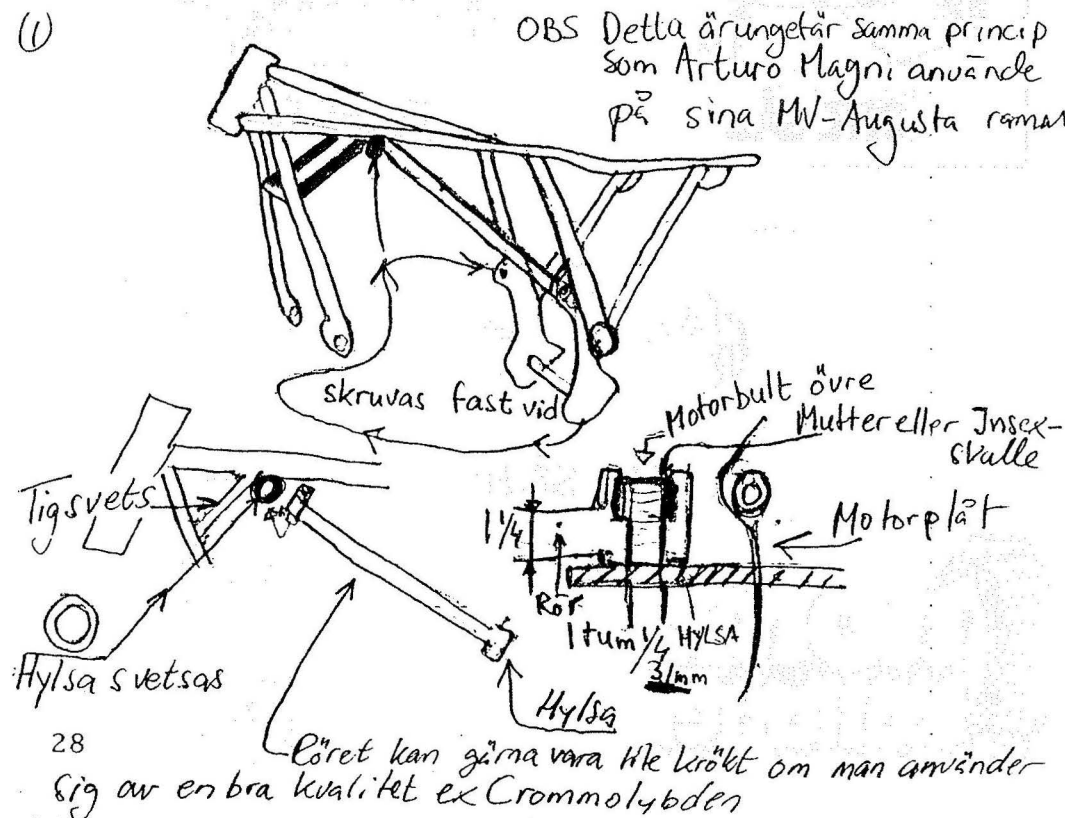 (1)
OBS Detta är ungefär samma princip
som Arturo Magni använde
på sina MV-Augusta ramar
skruvas fast vid
Motorbult övre
Mutter eller Insex-
skalle
Tigsvets
1 1/4
Motorplåt
Rör
1 tum 1/4
HYLSA
31mm
Hylsa svetsas
Hylsa
28
Röret kan gärna vara lite krökt om man använder
sig av en bra kvalitet ex Crommolybden